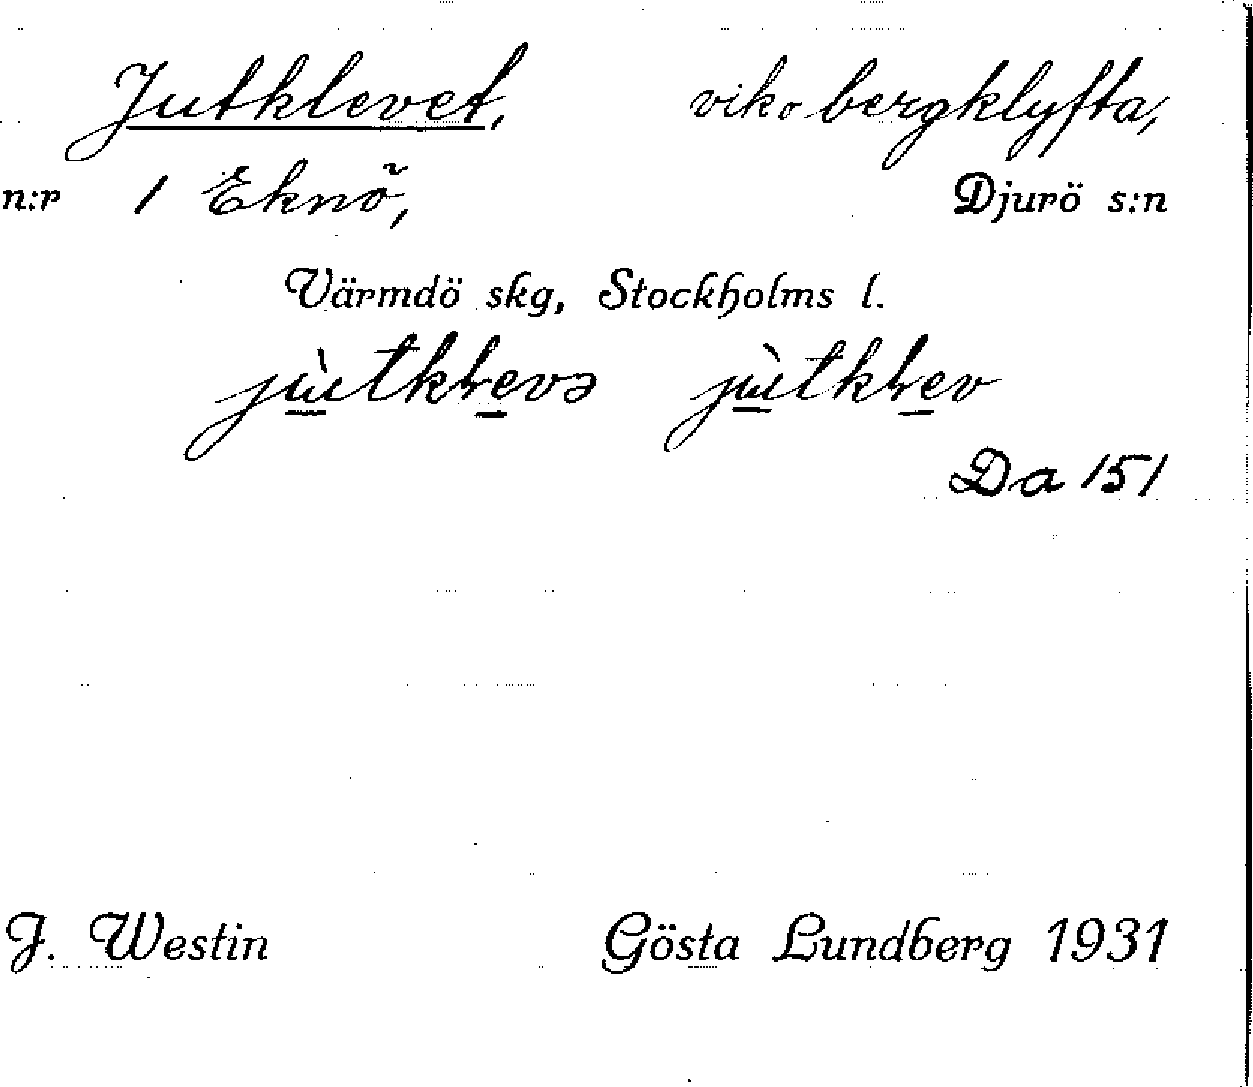 Jutklevet, vik o bergklyfta,
n:r 1 Eknö, Djurö s:n
Värmdö skg, Stockholms l.
Da 151
J. Westin Gösta Lundberg 1931